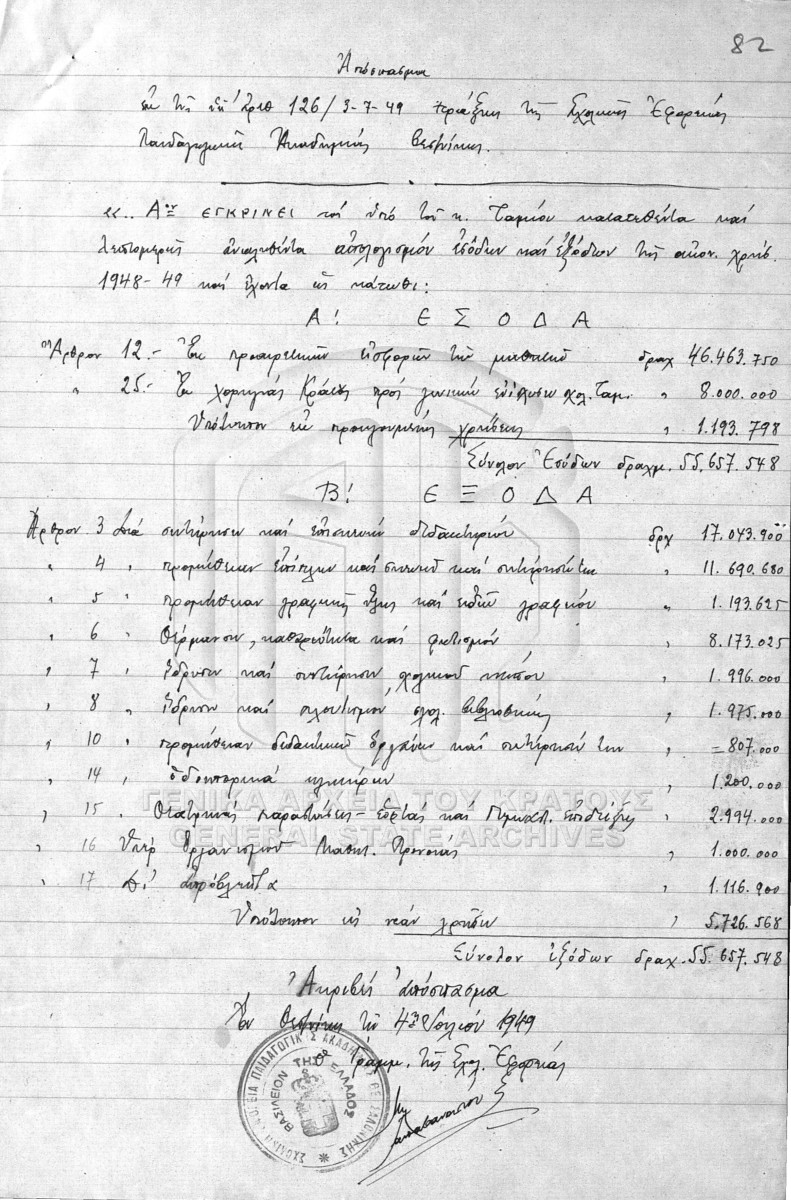 82
Ἀπόσπασμα
ἐκ τῆς ὑπ' ἀριθ 126/3-7-49 πράξεως τῆς Σχολικῆς Ἐφορείας
Παιδαγωγικῆς Ἀκαδημίας Θεσ/νίκης.
«.. Αον ΕΓΚΡΙΝΕΙ τόν ὑπό τοῦ κ. Ταμίου κατατεθέντα καί
λεπτομερῶς ἀναλυθέντα ἀπολογισμόν ἐσόδων καί ἐξόδων τῆς οἰκον. χρήσ.
1948-49 καί ἔχοντα ὡς κάτωθι:
Α! ΕΣΟΔΑ
Ἄρθρον 12.- Ἐκ προαιρετικῶν εἰσφορῶν τῶν μαθητῶν δραχ 46.463.750
" 25.- Ἐκ χορηγίας Κράτους πρός γενικήν ἐνίσχυσιν σχ. Ταμ. " 8.000.000
Ὑπόλοιπον ἐκ προηγουμένης χρήσεως " 1.193.798
Σύνολον Ἐσόδων δραχμ. 55.657.548
Β! ΕΞΟΔΑ
Ἄρθρον 3 Διά συντήρησιν καί ἐπισκευήν διδακτηρίου δρχ 17.043.900
" 4 " προμήθειαν ἐπίπλων καί σκευῶν καί συντήρησίν των " 11.690.680
" 5 " προμήθειαν γραφικῆς ὕλης καί εἰδῶν γραφείου " 1.193.625
" 6 " θέρμανσιν, καθαριότητα καί φωτισμόν " 8.173.025
" 7 " ἵδρυσιν καί συντήρησιν σχολικοῦ κήπου " 1.996.000
" 8 " ἵδρυσιν καί πλουτισμόν σχολ. βιβλιοθήκης " 1.975.000
" 10 " προμήθειαν διδακτικῶν ὀργάνων καί συντήρησίν των " =807.000
" 14 " ὁδοιπορικά κλητήρων " 1.200.000
" 15 " Θεατρικάς παραστάσεις - ἑορτάς καί Γυμναστ. ἐπιδείξεις " 2.994.000
" 16 Ὑπέρ Ὀργανισμοῦ Μαθητ. Προνοίας " 1.000.000
" 17 Δι' ἀπρόβλεπτα " 1.116.900
Ὑπόλοιπον εἰς νέαν χρῆσιν " 5.726.568
Σύνολον ἐξόδων δραχ. 55.657.548
Ἀκριβές Ἀπόσπασμα
Ἐν Θεσ/νίκῃ τῇ 4ῃ Ἰουλίου 1949
Ὁ Γραμμ. τῆς Σχολ. Ἐφορείας
ΣΧΟΛΙΚΗ ΕΦΟΡΕΙΑ ΠΑΙΔΑΓΩΓΙΚΗΣ ΑΚΑΔΗΜΙΑΣ ΘΕΣΣΑΛΟΝΙΚΗΣ
ΒΑΣΙΛΕΙΟΝ ΤΗΣ ΕΛΛΑΔΟΣ
ΓΕΝΙΚΑ ΑΡΧΕΙΑ ΤΟΥ ΚΡΑΤΟΥΣ
GENERAL STATE ARCHIVES